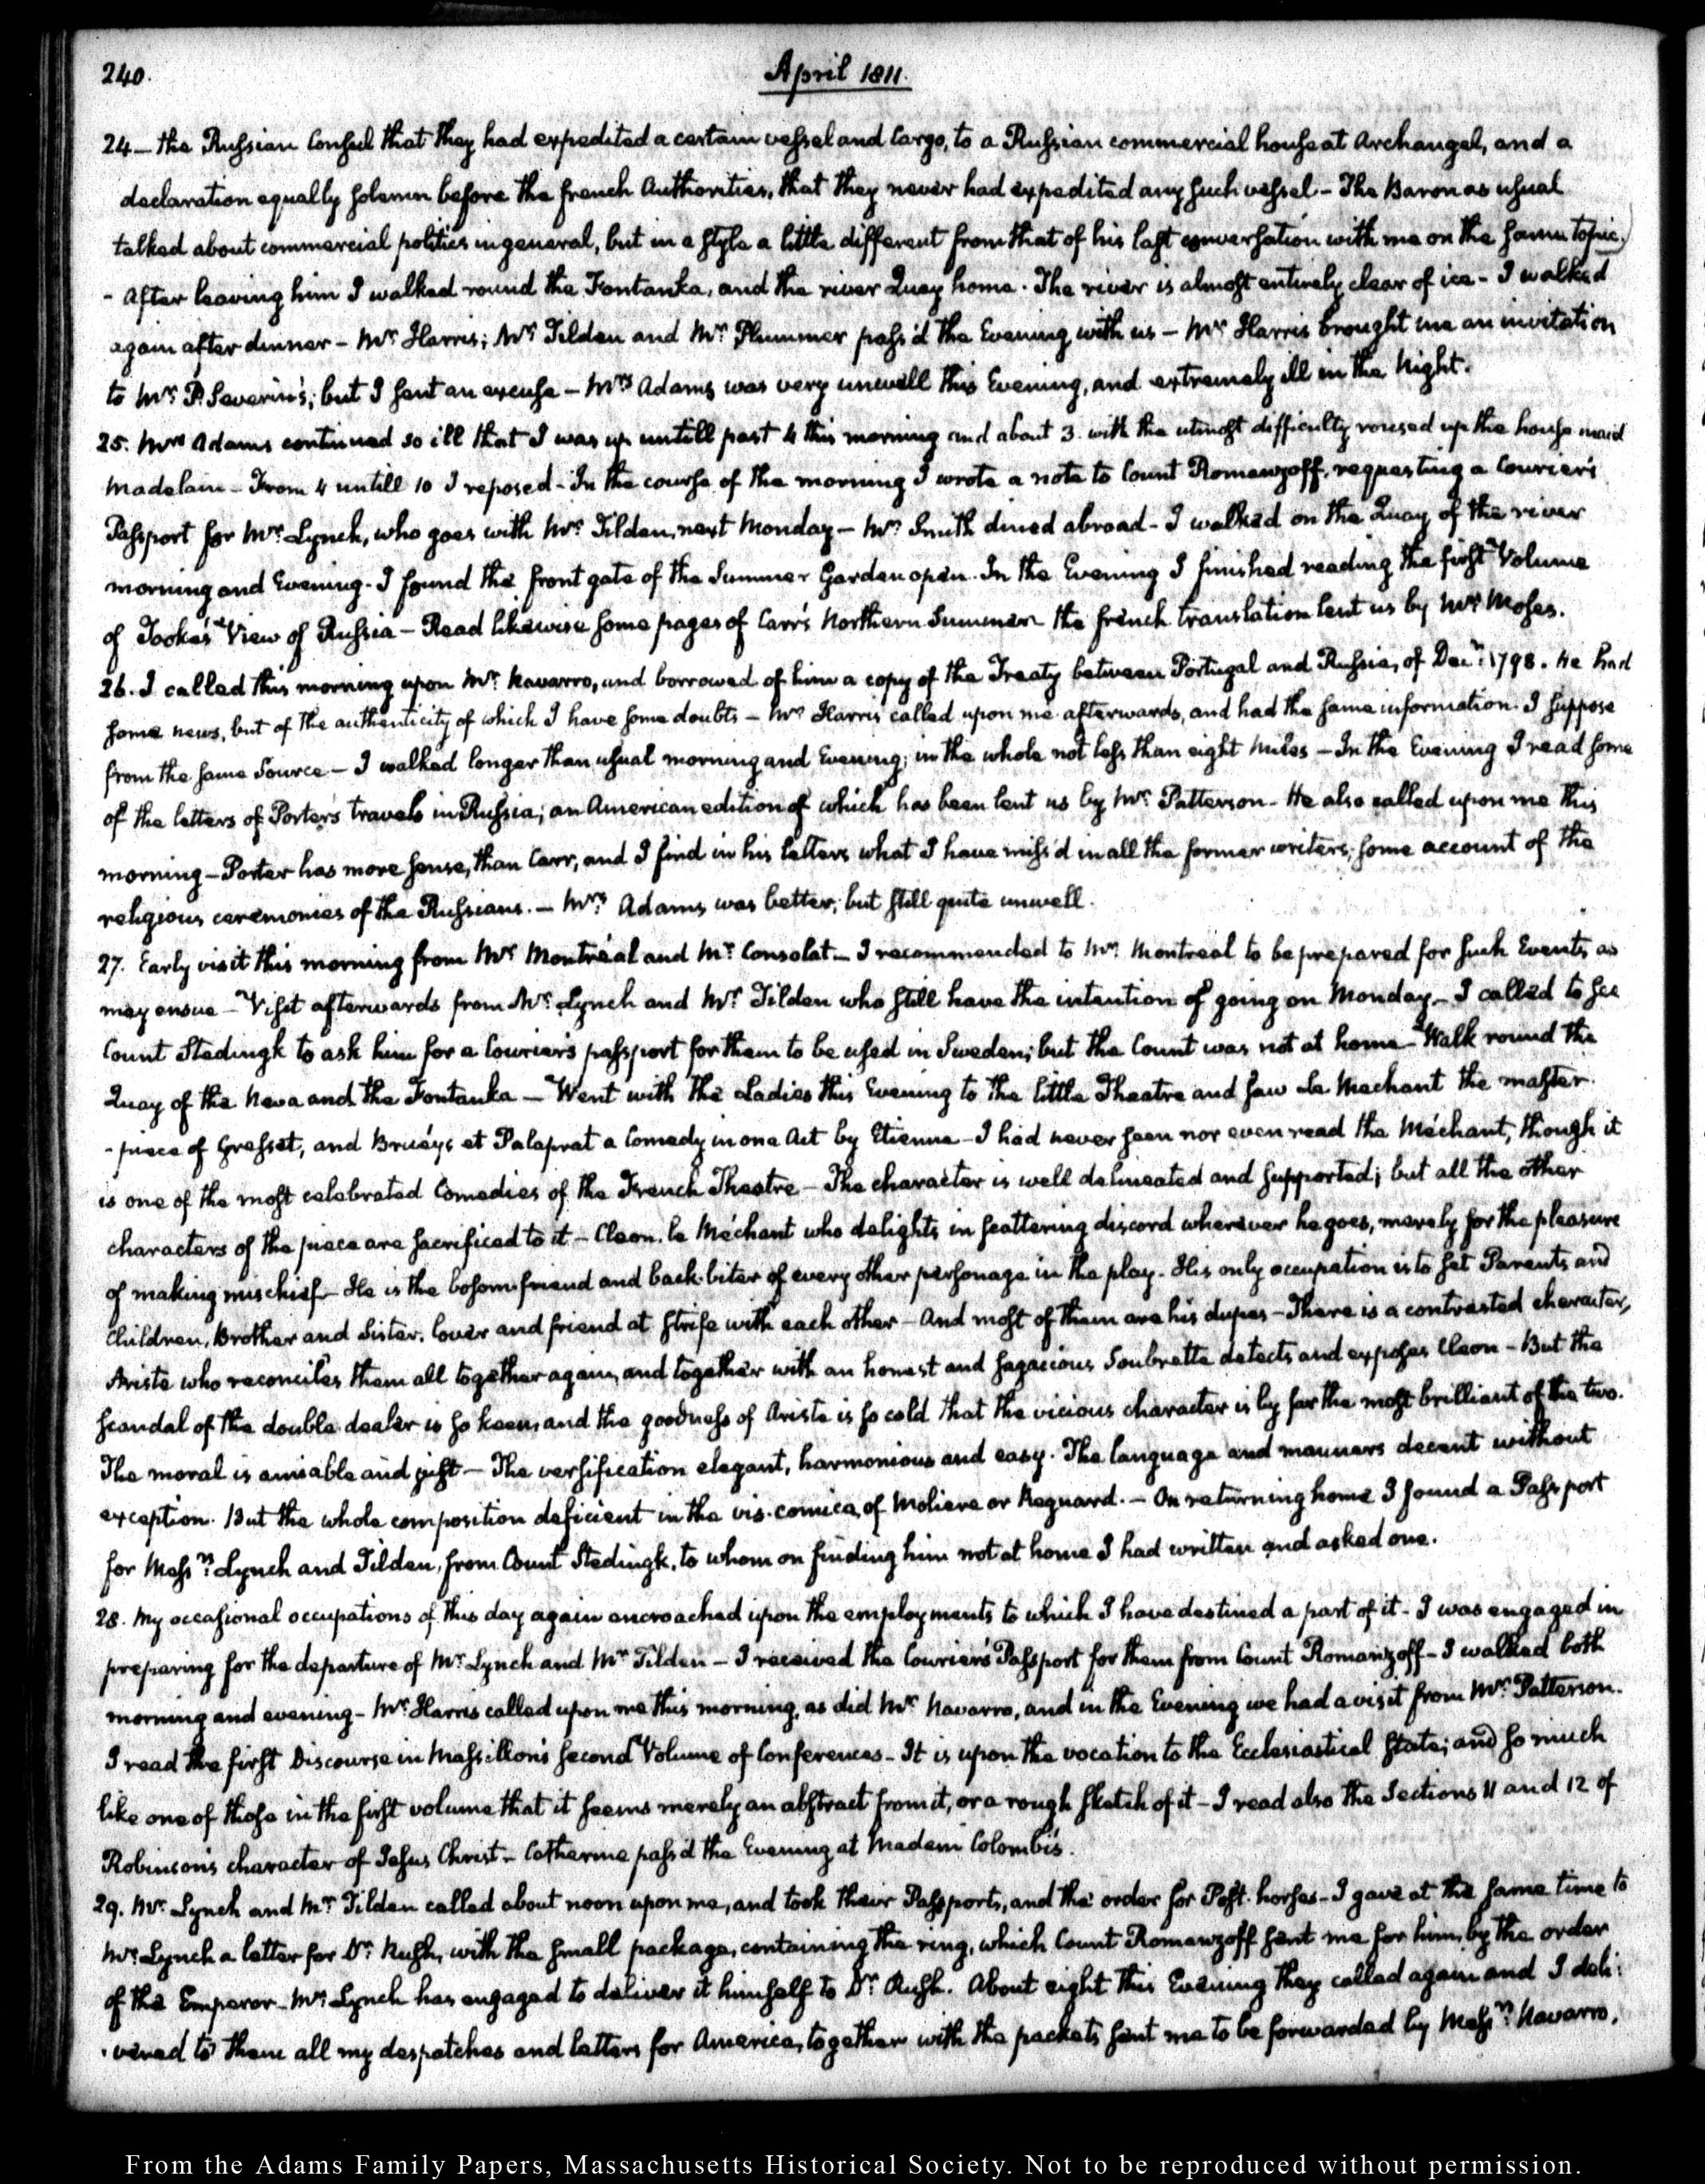 240.
April 1811.
24 — the Russian Consul that they had expedited a certain vessel and Cargo, to a Russian commercial house at Archangel, and a
declaration equally solemn before the french Authorities, that they never had expedited any such vessel – The Baron as usual
talked about commercial politics in general, but in a style a little different from that of his last conversation with me on the same topic.
- After leaving him I walked round the Fontanka, and the river Quay home. The river is almost entirely clear of ice – I walked
again after dinner – Mr. Harris; Mr. Tilden and Mr. Plummer pass'd the Evening with us – Mr. Harris brought me an invitation
to Mr. P. Severin's; but I sent an excuse – Mrs. Adams was very unwell this Evening, and extremely ill in the Night.
25. Mrs Adams continued so ill that I was up untill past 4 this morning and about 3. with the utmost difficulty roused up the house maid
Madelain – From 4 untill 10 I reposed – In the course of the morning I wrote a note to Count Romanzoff, requesting a Courier's
Passport for Mr. Lynch, who goes with Mr. Tilden, next Monday – Mr. Smith dined abroad – I walked on the Quay of the river
morning and Evening. I found the front gate of the Summer Garden open. In the Evening I finished reading the first Volume
of Tooke's View of Russia – Read likewise some pages of Carr's Northern Summer the french translation lent us by Mr. Moses.
26. I called this morning upon Mr. Navarro, and borrowed of him a copy of the Treaty between Portugal and Russia, of Decr. 1798. He had
some news, but of the authenticity of which I have some doubts – Mr. Harris called upon me afterwards, and had the same information. I suppose
from the same Source – I walked longer than usual morning and Evening; in the whole not less than eight miles – In the Evening I read some
of the letters of Porter's travels in Russia; an American edition of which has been lent us by Mr. Patterson – He also called upon me this
morning – Porter has more sense, than Carr, and I find in his letters what I have miss'd in all the former writers; some account of the
religious ceremonies of the Russians. – Mrs. Adams was better; but still quite unwell.
27. Early visit this morning from Mr. Montréal and Mr. Consolat – I recommended to Mr. Montreal to be prepared for such Events as
may ensue – Visit afterwards from Mr. Lynch and Mr. Tilden who still have the intention of going on Monday – I called to see
Count Stedingk to ask him for a Courier's passport for them to be used in Sweden; but the Count was not at home – Walk round the
Quay of the Neva and the Fontanka – Went with the Ladies this Evening to the little Theatre and saw Le Mechant the master
-piece of Gresset, and Bruéys et Palaprat a Comedy in one Act by Etienne – I had never seen nor even read the Méchant, though it
is one of the most celebrated Comedies of the French Theatre – The character is well delineated and supported; but all the other
characters of the piece are sacrificed to it – Cleon, le Méchant who delights in scattering discord wherever he goes, merely for the pleasure
of making mischief – He is the bosom friend and back-biter of every other personage in the play. His only occupation is to set Parents and
Children, Brother and Sister, lover and friend at strife with each other – And most of them are his dupes – There is a contrasted character,
Ariste who reconciles them all together again, and together with an honest and sagacious Soubrette detects and exposes Cleon – But the
scandal of the double dealer is so keen, and the goodness of Ariste is so cold that the vicious character is by far the most brilliant of the two.
The moral is amiable and just – The versification elegant, harmonious and easy. The language and manners decent without
exception. But the whole composition deficient in the vis-comica, of Moliere or Regnard. – On returning home I found a Passport
for Messrs. Lynch and Tilden, from Count Stedingk, to whom on finding him not at home I had written and asked one.
28. My occasional occupations of this day again encroached upon the employments to which I have destined a part of it – I was engaged in
preparing for the departure of Mr. Lynch and Mr. Tilden – I received the Courier's Passport for them from Count Romanzoff – I walked both
morning and evening – Mr. Harris called upon me this morning, as did Mr. Navarro, and in the Evening we had a visit from Mr. Patterson.
I read the first Discourse in Massillon's second Volume of Conferences – It is upon the vocation to the Ecclesiastical State; and so much
like one of those in the first volume that it seems merely an abstract from it, or a rough sketch of it – I read also the Sections 11 and 12 of
Robinson's character of Jesus Christ – Catherine pass'd the Evening at Madam Colombi's.
29. Mr. Lynch and Mr. Tilden called about noon upon me, and took their Passports, and the order for Post-horses – I gave at the same time to
Mr. Lynch a letter for Dr. Rush, with the small package, containing the ring, which Count Romanzoff sent me for him, by the order
of the Emperor – Mr. Lynch has engaged to deliver it himself to Dr. Rush. About eight this Evening they called again and I deli-
-vered to them all my despatches and letters for America, together with the packets sent me to be forwarded by Messrs. Navarro,
From the Adams Family Papers, Massachusetts Historical Society. Not to be reproduced without permission.